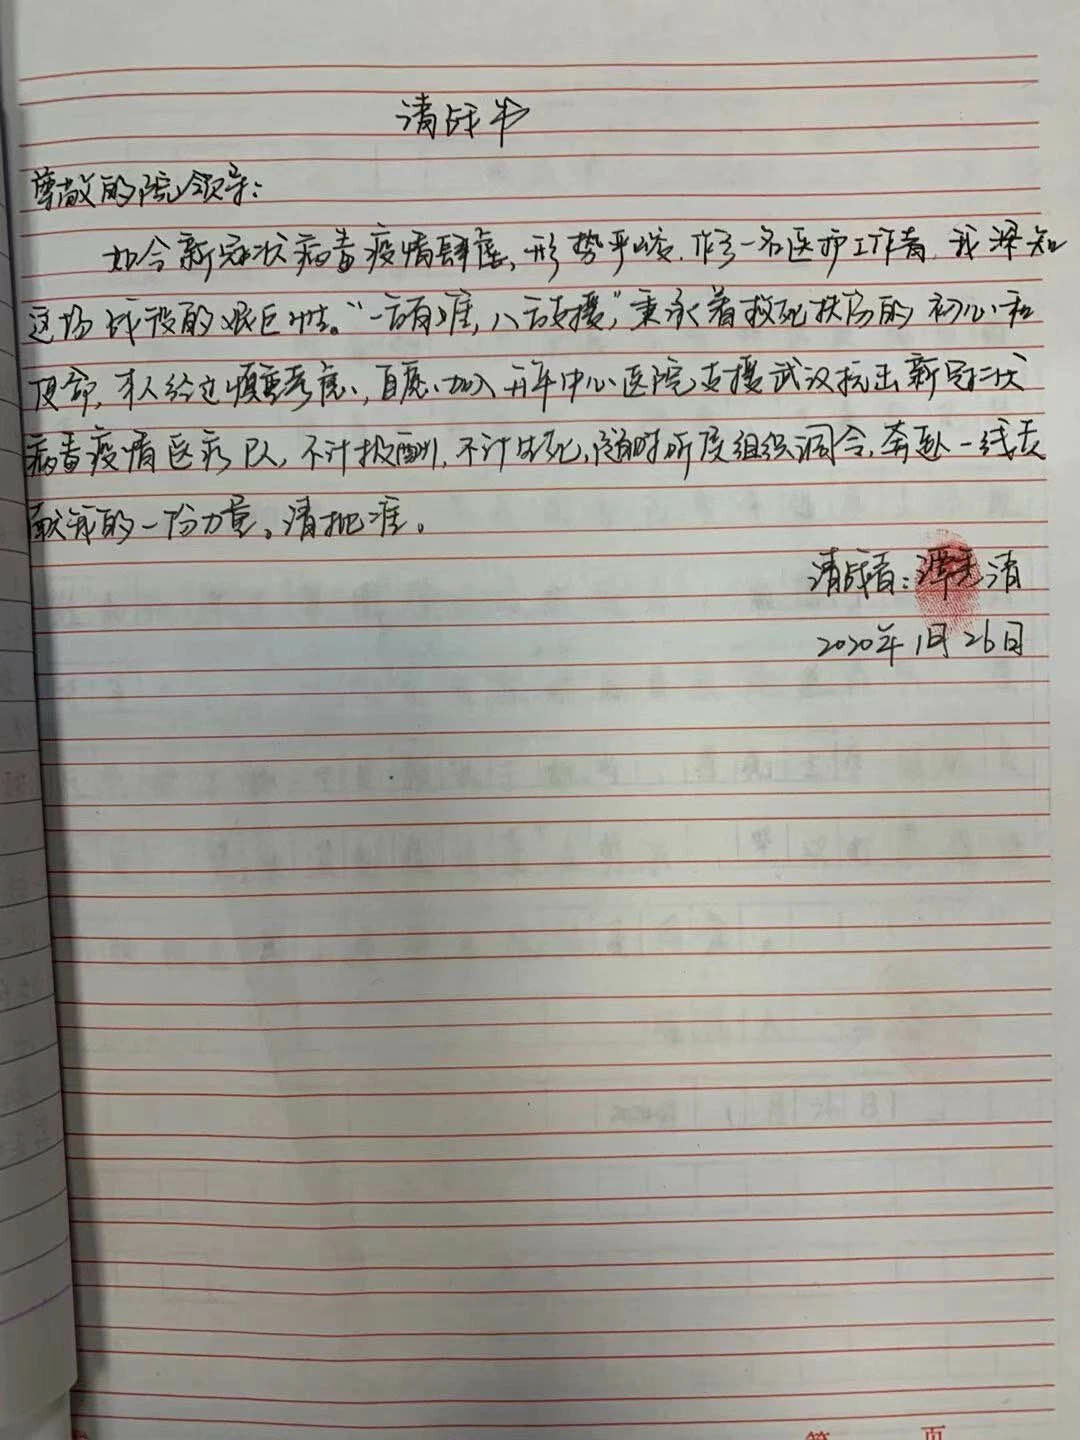 请战书
尊敬的院领导:
如今新冠状病毒疫情肆虐,形势严峻,作为一名医护工作者,我深知
这场战役的艰巨性。“一方有难,八方支援”,秉承着救死扶伤的初心和
使命,本人经过慎重考虑,自愿加入 中心医院支援武汉抗击新冠状
病毒疫情医疗队,不计报酬,不计生死,随时听候组织调令,奔赴一线贡
献我的一份力量。请批准。
请战者: 清
2020年1月26日
第 页